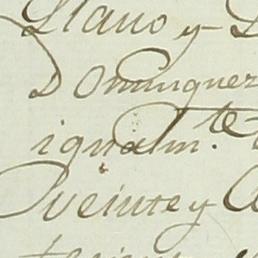 Llano y
Dominguez
igualm.te
veinte y